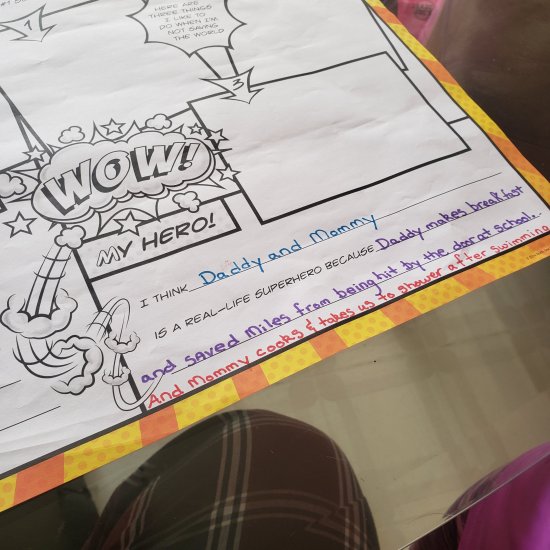 1
HERE ARE
THREE THINGS
I LIKE TO
DO WHEN I'M
NOT SAVING
THE WORLD
3
WOW!
MY HERO!
I THINK Daddy and Mommy
IS A REAL-LIFE SUPERHERO BECAUSE Daddy makes breakfast
and saved Miles from being hit by the door at school.
And Mommy cooks & takes us to shower after swimming